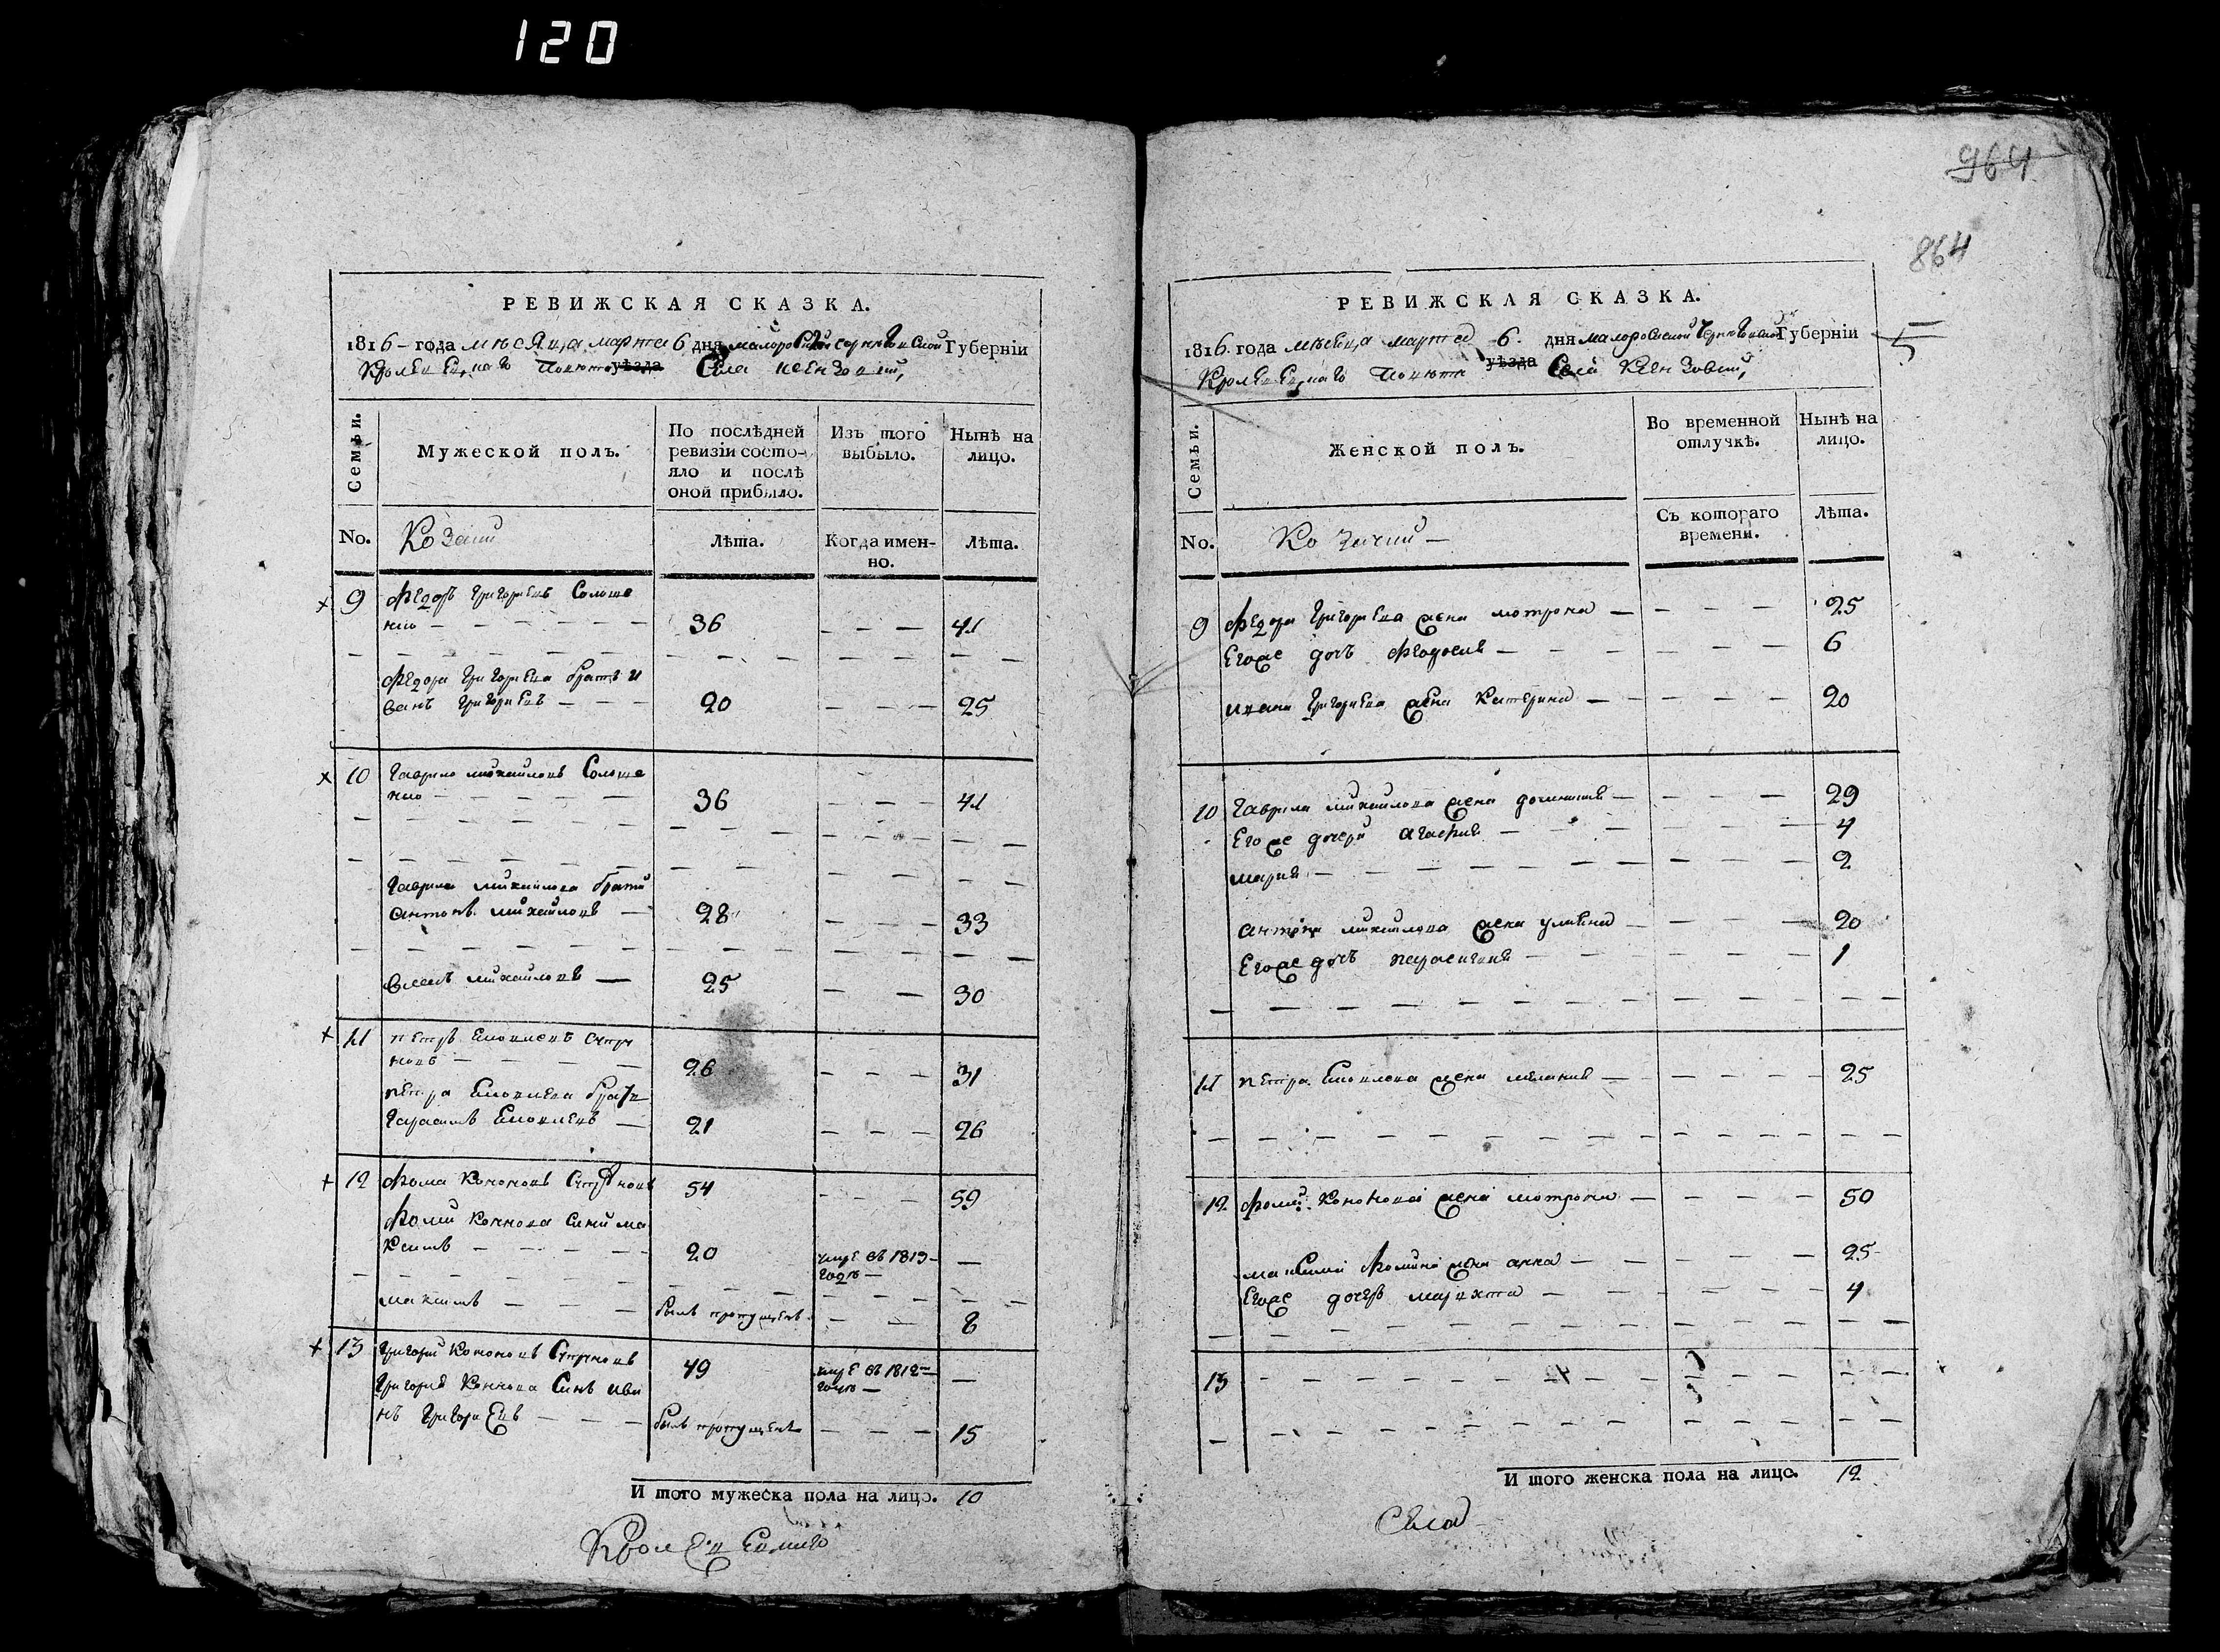 120
РЕВИЖСКАЯ СКАЗКА.
1816 - года мѣсяца марта 6 дня малоросiйской черниговской Губерніи
Кролевецкаго повѣта уѣзда Села
Семьи.
Мужеской полъ.
По послѣдней ревизіи состояло и послѣ оной прибыло.
Изъ того выбыло.
Нынѣ на лицо.
No.
Козаки
Лѣта.
Когда именно.
Лѣта.
9 Федоръ Григориевъ Солоше
нко 36 41
Федора Григориева братъ И
ванъ Григориевъ 20 25
10 Гаврило михайловъ Солоше
нко 36 41
Гаврила михайлова братья
Антонъ михайловъ 28 33
михайловъ 25 30
11 петръ
новъ 26 31
петра братъ
Герасимъ 21 26
12 Фома Кононовъ 54 59
Фомы Коннова Синъ ма
ксимъ 20 умре въ 1813
годѣ
максимъ былъ пропущенъ 8
13 Григорій Кононовъ 49 умре въ 1812
годѣ
Григорія Коннова Синъ Ива
нъ Григориевъ былъ пропущенъ 15
И того мужеска пола на лицо. 10
Кролевецкаго
964
864
РЕВИЖСКАЯ СКАЗКА.
1816. года мѣсяца марта 6. дня малоросiйской Черниговской Губерніи
Кролевецкаго повѣта уѣзда Села
Семьи.
Женской полъ.
Во временной отлучкѣ.
Нынѣ на лицо.
No.
Козачки
Съ котораго времени.
Лѣта.
9 Федора Григориева жена мотрона 25
Егоже дочь Феодосия 6
Ивана Григориева жена Катерина 20
10 Гаврила михайлова жена 29
Егоже дочери Агафия 4
мария 2
Антона михайлова жена улияна 20
Егоже дочь параскевия 1
11 петра жена мелания 25
12 Фомы Кононова жена мотрона 50
максима Фомина жена анна 25
Егоже дочерь марфа 4
13
И того женска пола на лицо. 12
Села